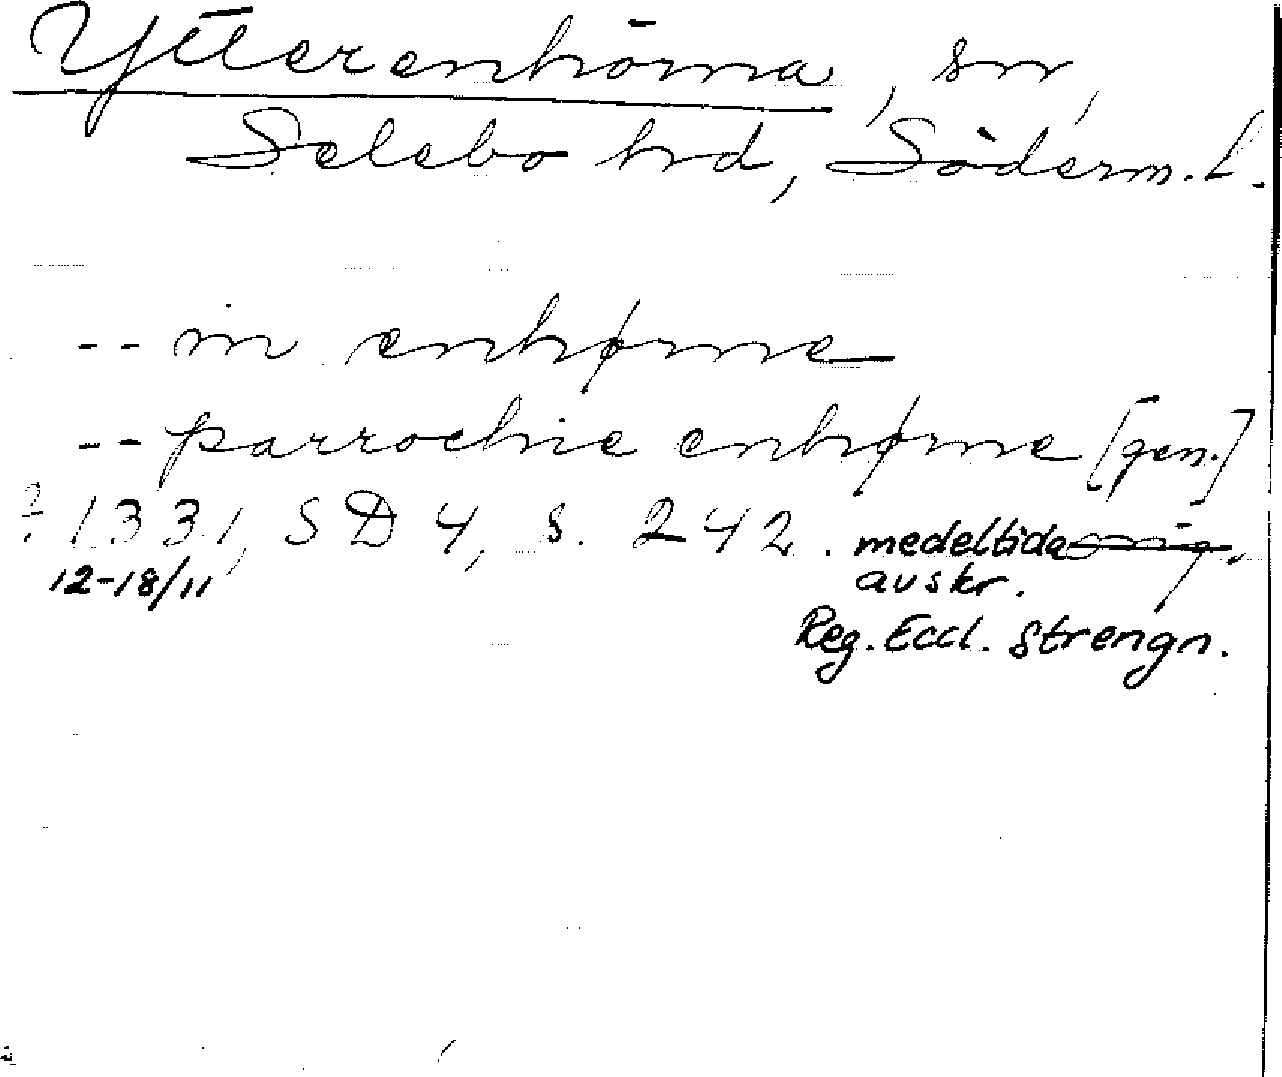 Ytterenhörna, sn,
Selebo hd, Söderm. l.
-- in enhørne
-- parrochie enhørne [gen.]
? 1331, SD 4, s. 242. medeltida orig.
12-18/11 avskr.
Reg. Eccl. Strengn.